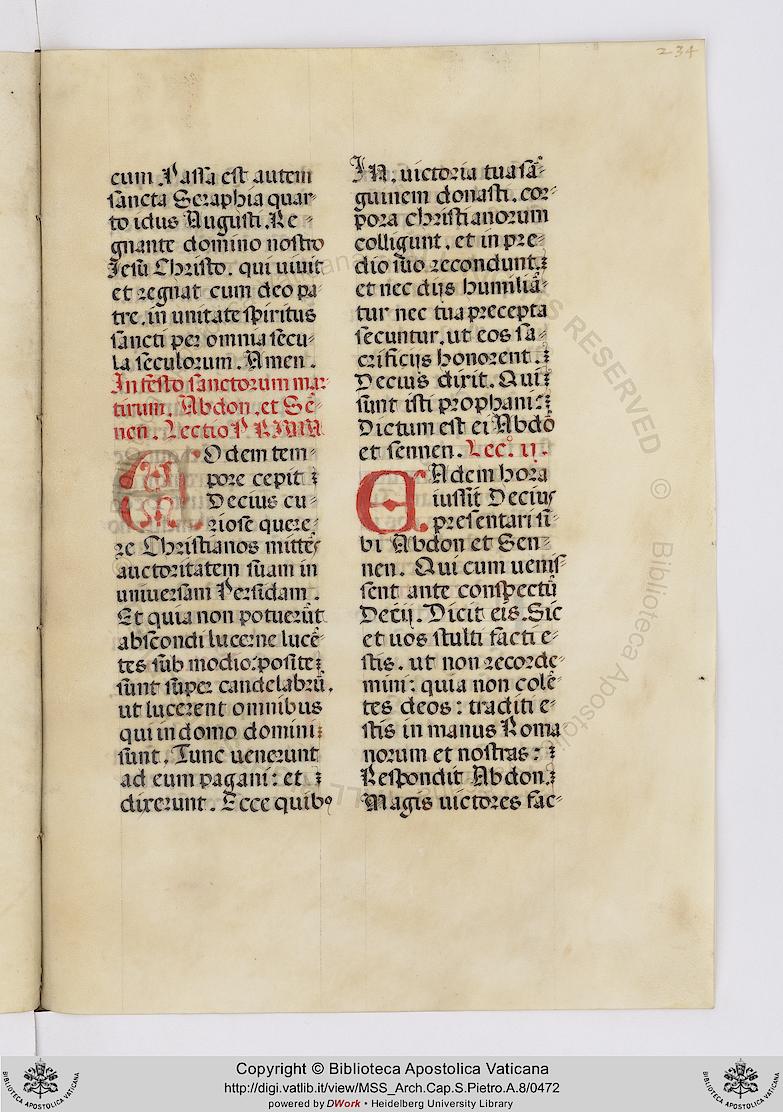 234
cum. Passa est autem
sancta Seraphia quar⸗
to idus Augusti. Re⸗
gnante domino nostro
Iesū Christo. qui uiuit
et regnat cum deo pa
tre. in unitate spiritus
sancti per omnia secu⸗
la seculorum. Amen.
In festo sanctorum mar⸗
tirum. Abdon. et Sē⸗
nen. Lectio PRIMA
EOdem tem⸗
pore cepit
Decius cu⸗
riose quere⸗
re Christianos mittēs
auctoritatem suam in
uniuersam Persidam.
Et quia non potuerūt
abscondi lucerne lucē⸗
tes sub modio: posite
sunt super candelabrū.
ut lucerent omnibus
qui in domo domini
sunt. Tunc uenerunt
ad eum pagani: et
dixerunt. Ecce quibꝰ
IN. uictoria tua sā⸗
guinem donasti. cor⸗
pora christianorum
colligunt. et in pre⸗
dio suo recondunt.
et nec dijs humiliā⸗
tur nec tua precepta
secuntur. ut eos sa⸗
crificijs honorent.
Decius dixit. Qui
sunt isti prophani:
Dictum est ei Abdō
et sennen. Lec°. ij.
EAdem hora
iussit Decius
presentari si⸗
bi Abdon et Sen⸗
nen. Qui cum uenis⸗
sent ante conspectū
Decij. Dicit eis. Sic
et uos stulti facti e⸗
stis. ut non recorde⸗
mini: quia non colē⸗
tes deos: traditi e⸗
stis in manus Roma
norum et nostras:
Respondit Abdon.
Magis uictores fac⸗
RESERVED © Biblioteca Apostolica
Copyright © Biblioteca Apostolica Vaticana
http://digi.vatlib.it/view/MSS_Arch.Cap.S.Pietro.A.8/0472
powered by DWork • Heidelberg University Library
BIBLIOTECA APOSTOLICA VATICANA
BIBLIOTECA APOSTOLICA VATICANA